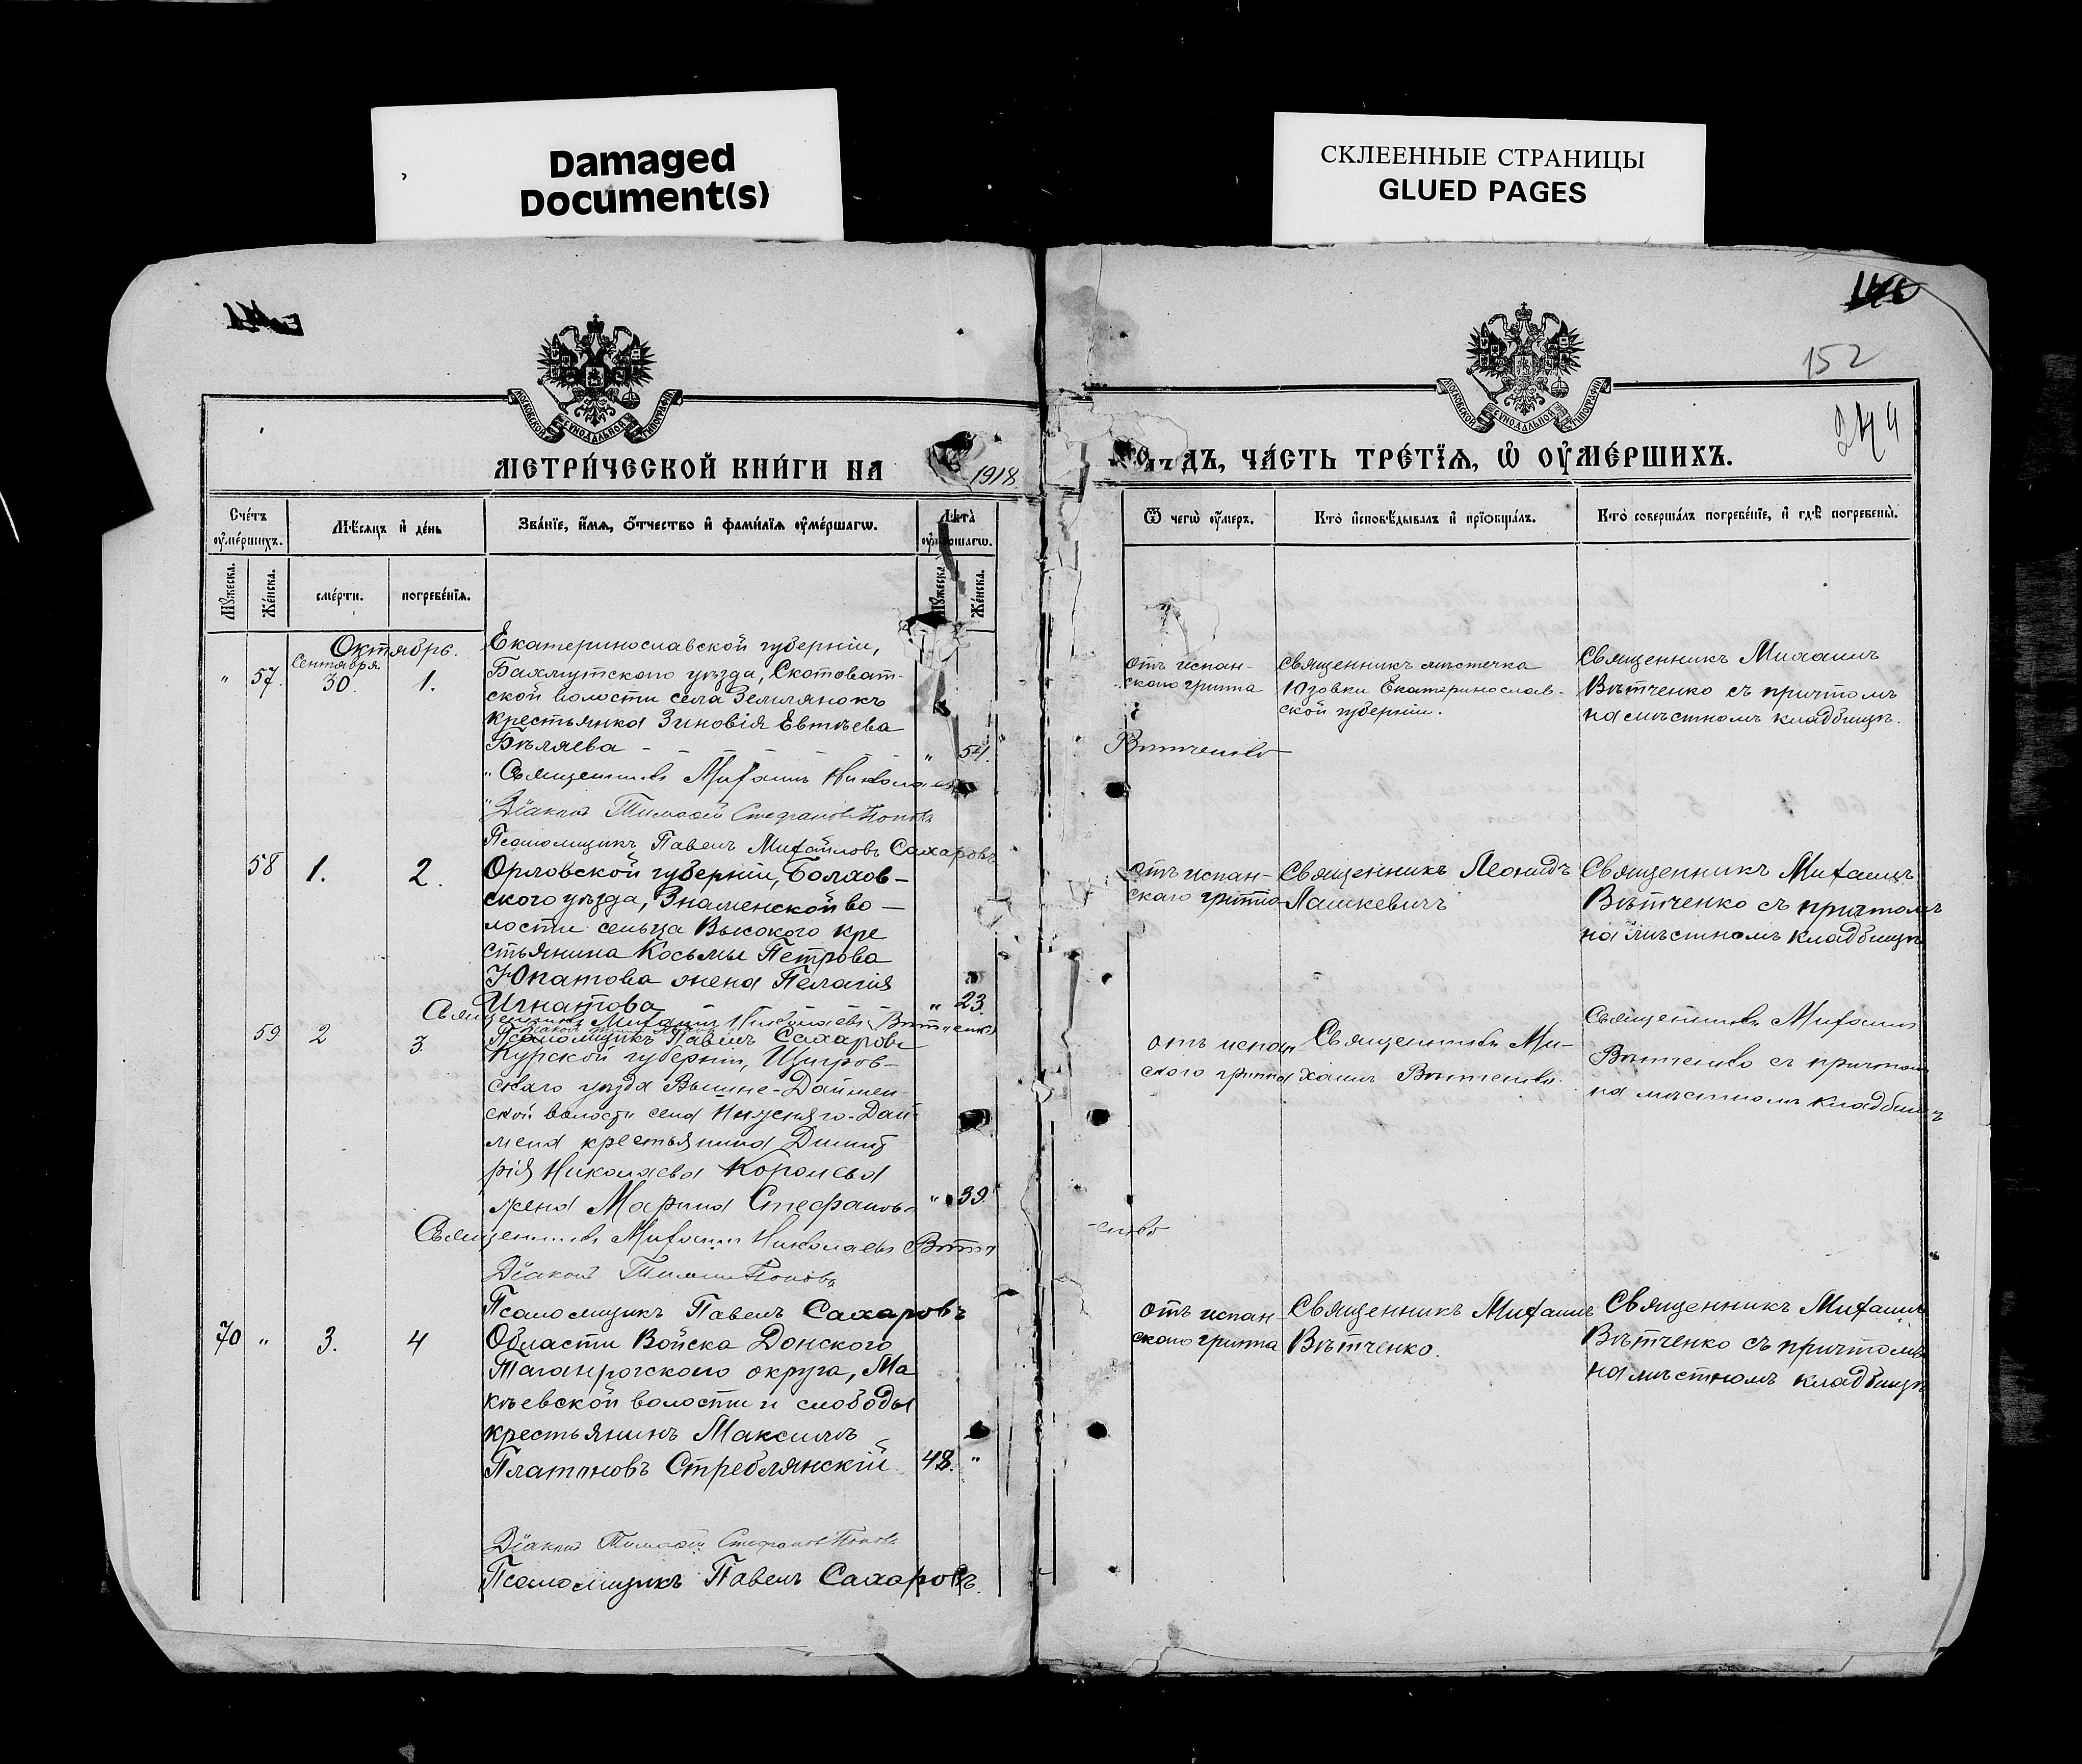 Damaged
Document(s)
СКЛЕЕННЫЕ СТРАНИЦЫ
GLUED PAGES
152
МОСКОВСКОЙ СУНОДАЛЬНОЙ ТИПОГРАФІИ
МОСКОВСКОЙ СУНОДАЛЬНОЙ ТИПОГРАФІИ
МЕТРИ́ЧЕСКОЙ КНИ́ГИ НА 1918
ДЪ, ЧА́СТЬ ТРЕ́ТЇѦ, Ѡ҆ ОУ҆МЕ́РШИХЪ.
Сче́тъ оу҆ме́ршихъ.
Мѣ́сѧцъ и҆ де́нь
Зва́нїе, и҆́мѧ, ѻ҆́тчество и҆ фами́лїѧ оу҆ме́ршагѡ.
Лѣ́та̀ оу҆ме́ршагѡ.
Ѿ чегѡ̀ оу҆́меръ.
Кто̀ и҆сповѣ́дывалъ и҆ прїѡбща́лъ.
Кто̀ соверша́лъ погребе́нїе, и҆ гдѣ̀ погребены̀.
Мꙋ́жеска.
Же́нска.
сме́рти.
погребе́нїѧ.
Мꙋ́жеска.
Же́нска.
Октябрь.
" 57. Сентября 30. 1.
Екатеринославской губерніи,
Бахмутскаго уѣзда, Скотоват-
ской волости села Землянокъ
крестьянка Зиновія Евтѣева
Бѣляева " 54.
отъ испан-
скаго гриппа
Священникъ мѣстечка
Юзовки Екатеринослав-
ской губерніи.
Священникъ Михаилъ
Вѣтченко съ причтомъ
на мѣстномъ кладбищѣ.
Священникъ Михаилъ Николаевъ
Вѣтченко
Діаконъ Тимофей Стефановъ Поповъ
Псаломщикъ Павелъ Михайловъ Сахаровъ
58 1. 2.
Орловской губерніи, Болхов-
ского уѣзда, Знаменской во-
лости сельца Высокого кре
стьянина Косьмы Петрова
Юпатова жена Пелагія
Игнатова " 23.
отъ испан-
скаго гриппа
Священникъ Леонидъ
Лашкевичъ
Священникъ Михаилъ
Вѣтченко съ причтомъ
на мѣстномъ кладбищѣ
Священникъ Михаилъ Николаевъ Вѣтченко
Псаломщикъ Павелъ Сахаровъ
59 2 3.
Курской губерніи, Щигров-
скаго уѣзда Вышне-Даймен-
ской волости села Нижняго-Дай-
мена крестьянина Димит
рія Николаева Королева
жена Марина Стефанова " 39.
отъ испан
скаго гриппа
Священникъ Ми-
хаилъ Вѣтченко.
Священникъ Михаилъ
Вѣтченко съ причтомъ
на мѣстномъ кладбищѣ
Священникъ Михаилъ Николаевъ Вѣтч
-енко
Діаконъ Тимофей Поповъ
Псаломщикъ Павелъ Сахаровъ
70 " 3. 4
Области Войска Донского
Таганрогскаго округа, Ма
кѣевской волости и слободы
крестьянинъ Максимъ
Платоновъ Стреблянскій 48. "
отъ испан-
скаго гриппа
Священникъ Михаилъ
Вѣтченко.
Священникъ Михаилъ
Вѣтченко съ причтомъ
на мѣстномъ кладбищѣ
Діаконъ Тимофей Стефановъ Поповъ
Псаломщикъ Павелъ Сахаровъ.